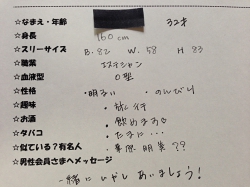 ☆なまえ・年齢 32才
☆身長 160cm
☆スリーサイズ B.82 W.58 H 83
☆職業 エステシャン
☆血液型 O型
☆性格 ・明るい ・のんびり
☆趣味 ・旅行
☆お酒 飲めます☆
☆タバコ ・たまに…
☆似ている?有名人
☆男性会員さまへメッセージ
一緒にいやしあいましょう!